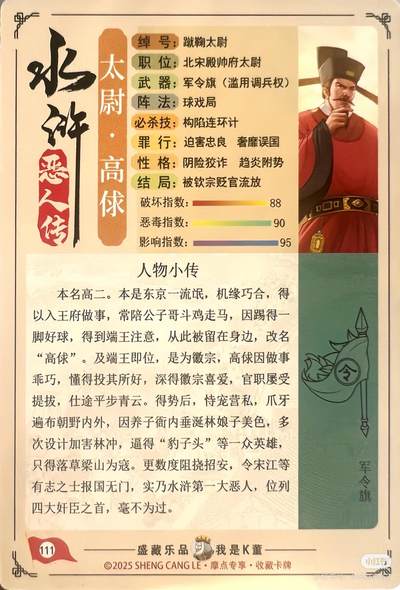 水浒
恶人传
太尉·高俅
绰号：蹴鞠太尉
职位：北宋殿帅府太尉
武器：军令旗（滥用调兵权）
阵法：球戏局
必杀技：构陷连环计
罪行：迫害忠良 奢靡误国
性格：阴险狡诈 趋炎附势
结局：被钦宗贬官流放
破坏指数： 88
恶毒指数： 90
影响指数： 95
人物小传
本名高二。本是东京一流氓，机缘巧合，得
以入王府做事，常陪公子哥斗鸡走马，因踢得一
脚好球，得到端王注意，从此被留在身边，改名
“高俅”。及端王即位，是为徽宗，高俅因做事
乖巧，懂得投其所好，深得徽宗喜爱，官职屡受
提拔，仕途平步青云。得势后，恃宠营私，爪牙
遍布朝野内外，因养子衙内垂涎林娘子美色，多
次设计加害林冲，逼得“豹子头”等一众英雄，
只得落草梁山为寇。更数度阻挠招安，令宋江等
有志之士报国无门，实乃水浒第一大恶人，位列
四大奸臣之首，毫不为过。
令
军令旗
111
盛藏乐品 我是K董
©2025 SHENG CANG LE·摩点专享·收藏卡牌
小红书